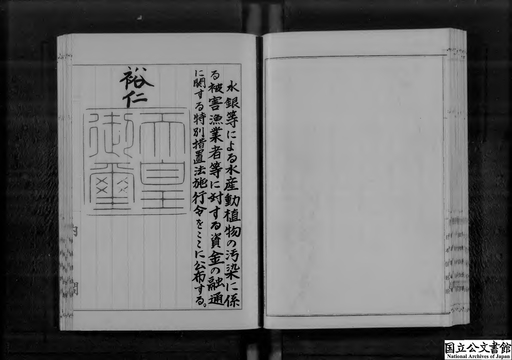 水銀等による水産動植物の汚染に係
る被害漁業者等に対する資金の融通
に関する特別措置法施行令をここに公布する。
裕仁
天皇
御璽
国立公文書館
National Archives of Japan